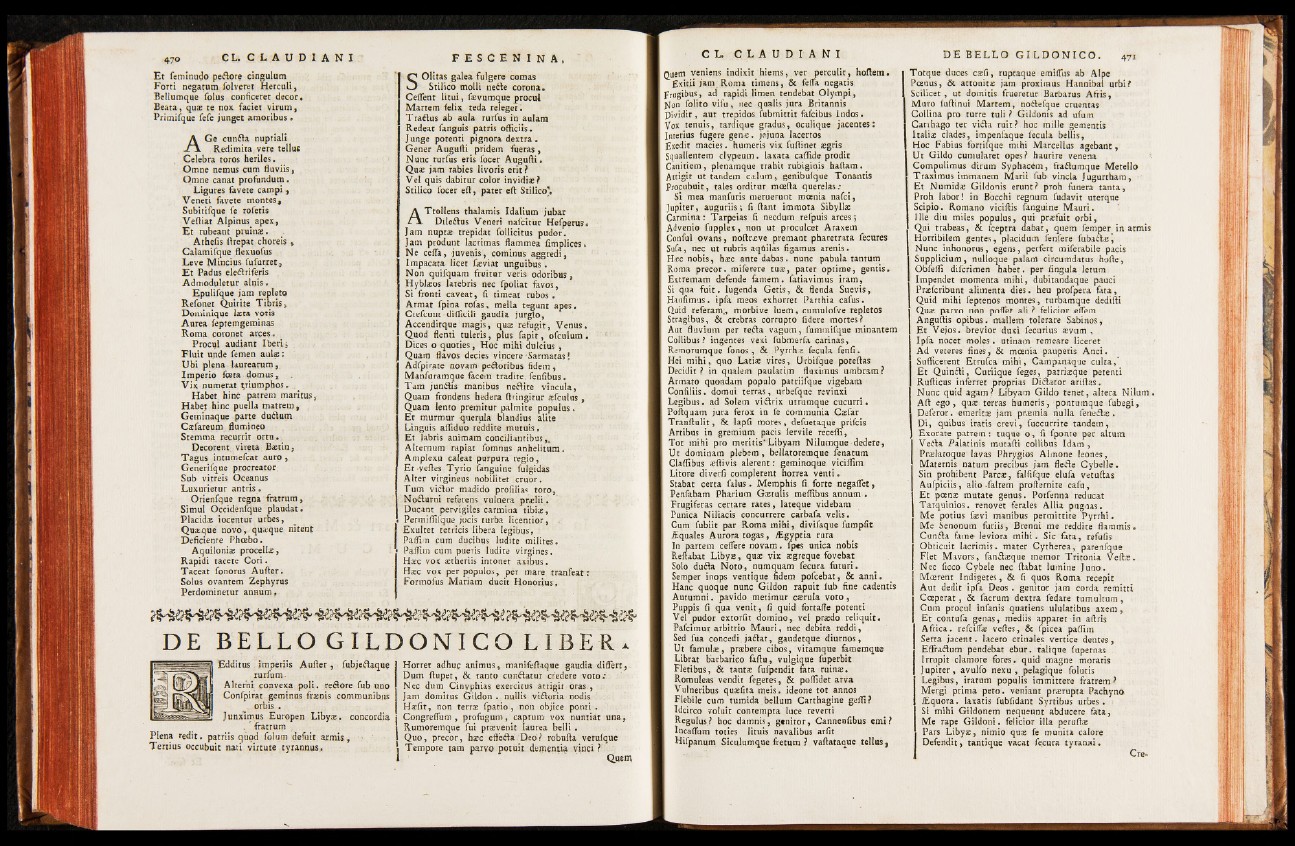 470 CL. CLAUDIANI
Et feminudo pectore cingulum
Forti negatum solveret Herculi,
Bellumque solus conficeret decor.
Beata, quæ te nox faciet virum,
Primisque sese junget amoribus.
AGe cuncta nuptiali
Redimita vere tellus
Celebra toros heriles.
Omne nemus cum fluviis,
Omne canat profundum.
Ligures favete campi,
Veneti favete montes,
Subitisque se rosetis
Vestiat Alpinus apex,
Et rubeant pruinæ.
Athesis strepat choreis,
Calamisque flexuosus
Leve Mincius susurret,
Et Padus electriferis
Admoduletur alnis.
Epulisque jam repleto
Resonet Quirite Tibris,
Dominique læta votis
Aurea septemgeminas
Roma coronet arces.
Procul audiant Iberi,
Fluit unde semen aulæ:
Ubi plena laurearum,
Imperio fœta domus,
Vix numerat triumphos.
Habet hinc patrem maritus,
Habet hinc puella matrem,
Geminaque parte ductum
Cæsareum flumineo
Stemma recurrit ortu.
Decorent vireta Bætin,
Tagus intumescat auro,
Generisque procreator
Sub vitreis Oceanus
Luxurietur antris.
Oriensque regna fratrum,
Simul Occidensque plaudat.
Placidæ jocentur urbes,
Quæque novo, quæque nitent
Deficiente Phœbo.
Aquiloniæ procellæ,
Rapidi tacete Cori.
Taceat sonorus Auster.
Solus ovantem Zephyrus
Perdominetur annum.
FESCENINA,
SOlitas galea fulgere comas
Stilico molli necte corona.
Cessent litui, sævumque procul
Martem felix teda releget.
Tractus ab aula rursus in aulam
Redeat sanguis patris officiis.
Junge potenti pignora dextra.
Gener Augusti pridem fueras,
Nunc rursus eris socer Augusti.
Quæ jam rabies livoris erit?
Vel quis dabitur color invidiæ?
Stilico socer est, pater est Stilico.
ATtollens thalamis Idalium jubar
Dilectus Veneri nascitur Hesperus.
Jam nuptæ trepidat sollicitus pudor.
Jam produnt lacrimas flammea simplices.
Ne cessa, juvenis, cominus aggredi,
Impacata licet sæviat unguibus.
Non quisquam fruitur veris odoribus,
Hyblæos latebris nec spoliat favos,
Si fronti caveat, si timeat rubos.
Armat spina rosas, mella tegunt apes.
Crescunt difficili gaudia jurgio,
Accenditque magis, quæ refugit, Venus.
Quod flenti tuleris, plus sapit, osculum.
Dices o quoties, Hoc mihi dulcius,
Quam flavos decies vincere Sarmatas!
Adspirate novam pectoribus fidem,
Mansuramque facem tradite sensibus.
Tam junctis manibus nectite vincula,
Quam frondens hedera stringitur æsculus,
Quam lento premitur palmite populus.
Et murmur querula blandius alite
Linguis assiduo reddite mutuis.
Et labris animam conciliantibus,
Alternum rapiat somnus anhelitum.
Amplexu caleat purpura regio,
Et vestes Tyrio sanguine fulgidas
Alter virgineus nobilitet cruor.
Tum victor madido prosilias toro,
Nocturni referens vulnera prælii.
Ducant pervigiles carmina tibiæ,
Permissisque jocis turba licentior,
Exultet tetricis libera legibus,
Passim cum ducibus ludite milites.
Passim cum pueris ludite virgines.
Hæc vox ætheriis intonet axibus.
Hæc vox per populos, per mare transeat:
Formosus Mariam ducit Honorius.
DE BELLO GILDONICO LIBER.
REdditus imperiis Auster, subjectaque
rursum
Alterni convexa poli. rectore sub uno
Conspirat geminus frænis communibus
orbis.
Junximus Europen Libyæ. concordia
fratrum
Plena redit. patriis quod solum defuit armis,
Tertius occubuit nati virtute tyrannus.
Horret adhuc animus, manifestaque gaudia differt,
Dum stupet, & tanto cunctatur credere voto:
Nec dum Cinyphias exercitus attigit oras,
Jam domitus Gildon. nullis victoria nodis
Hæsit, non terræ spatio, non objice ponti.
Congressum, profugum, captum vox nuntiat una,
Rumoremque sui prævenit laurea belli.
Quo, precor, hæc effecta Deo? robusta vetusque
Tempore tam parvo potuit dementia vinci?
Quem
CL. CLAUDIANI
Quem veniens indixit hiems, ver perculit, hostem.
Exitii jam Roma timens, & fessa negatis
Frugibus, ad rapidi limen tendebat Olympi,
Non solito visu, nec qualis jura Britannis
Dividit, aut trepidos submittit fascibus Indos.
Vox tenuis, tardique gradus, oculique jacentes:
Interius fugere genæ. jejuna lacertos
Exedit macies. humeris vix sustinet ægris
Squallentem clypeum. laxata casside prodit
Canitiem, plenamque trahit rubiginis hastam.
Attigit ut tandem cælum, genibusque Tonantis
Procubuit, tales orditur mœsta querelas:
Si mea mansuris meruerunt mœnia nasci,
Jupiter, auguriis; si stant immota Sibyllæ
Carmina: Tarpeias si necdum respuis arces;
Advenio supplex, non ut proculcet Araxem
Consul ovans, nostræve premant pharetrata secures
Susa, nec ut rubris aquilas figamus arenis.
Hæc nobis, hæc ante dabas. nunc pabula tantum
Roma precor. miserere tuæ, pater optime, gentis.
Extremam defende famem. satiavimus iram,
Si qua fuit. lugenda Getis, & flenda Suevis,
Hausimus. ipsa meos exhorret Parthia casus.
Quid referam, morbive luem, cumulosve repletos
Stragibus, & crebras corrupto sidere mortes?
Aut fluvium per tecta vagum, summisque minantem
Collibus? ingentes vexi submersa carinas,
Remorumque sonos, & Pyrrhæ secula sensi.
Hei mihi, quo Latiæ vires, Urbisque potestas
Decidit? in qualem paulatim fluximus umbram?
Armato quondam populo patriisque vigebam
Consiliis. domui terras, urbesque revinxi
Legibus. ad Solem victrix utrumque cucurri.
Postquam jura ferox in se communia Cæsar
Transtulit, & lapsi mores, desuetaque priscis
Artibus in gremium pacis servile recessi,
Tot mihi pro meritis Libyam Nilumque dedere,
Ut dominam plebem, bellatoremque senatum
Classibus æstivis alerent: geminoque vicissim
Litore diversi complerent horrea venti.
Stabat certa salus. Memphis si forte negasset,
Pensabam Pharium Gætulis messibus annum.
Frugiferas certare rates, lateque videbam
Punica Niliacis concurrere carbasa velis.
Cum subiit par Roma mihi, divisaque sumpsit
Æquales Aurora togas, Ægyptia rura
In partem cessere novam. spes unica nobis
Restabat Libyæ, quæ vix ægreque fovebat
Solo ducta Noto, numquam secura futuri.
Semper inops ventique fidem poscebat, & anni.
Hanc quoque nunc Gildon rapuit sub fine cadentis
Autumni. pavido metimur cærula voto,
Puppis si qua venit, si quid fortasse potenti
Vel pudor extorsit domino, vel prædo reliquit.
Pascimur arbitrio Mauri, nec debita reddi,
Sed sua concedi jactat, gaudetque diurnos,
Ut famulæ, præbere cibos, vitamque famemque
Librat barbarico fastu, vulgique superbit
Fletibus, & tantæ suspendit fata ruinæ.
Romuleas vendit segetes, & possidet arva
Vulneribus quæsita meis. ideone tot annos
Flebile cum tumida bellum Carthagine gessi?
Idcirco voluit contempta luce reverti
Regulus? hoc damnis, genitor, Cannensibus emi?
Incassum toties lituis navalibus arsit
Hispanum Siculumque fretum? vastataque tellus,
DE BELLO GILDONICO. 471
Totque duces cæsi, ruptaque emissus ab Alpe
Pœnus, & attonitæ jam proximus Hannibal urbi?
Scilicet, ut domitis frueretur Barbarus Afris,
Muro sustinui Martem, noctesque cruentas
Collina pro turre tuli? Gildonis ad usum
Carthago ter victa ruit? hoc mille gementis
Italiæ clades, impensaque secula bellis,
Hoc Fabius fortisque mihi Marcellus agebant,
Ut Gildo cumularet opes? haurire venena
Compulimus dirum Syphacem, fractumque Metello
Traximus immanem Marii sub vincla Jugurtham,
Et Numidæ Gildonis erunt? proh funera tanta,
Proh labor! in Bocchi regnum sudavit uterque
Scipio. Romano vicistis sanguine Mauri.
Ille diu miles populus, qui præfuit orbi,
Qui trabeas, & sceptra dabat, quem semper in armis
Horribilem gentes, placidum sensere subactæ,
Nunc inhonorus, egens, perfert miserabile pacis
Supplicium, nulloque palam circumdatus hoste,
Obsessi discrimen habet. per singula letum
Impendet momenta mihi, dubitandaque pauci
Præscribunt alimenta dies. heu prospera fata,
Quid mihi septenos montes, turbamque dedisti
Quæ parvo non posset ali? felicior essem
Angustis opibus. mallem tolerare Sabinos,
Et Vejos. brevior duxi securius ævum.
Ipsa nocet moles. utinam remeare liceret
Ad veteres fines, & mœnia pauperis Anci.
Sufficerent Etrusca mihi, Campanaque culta,
Et Quincti, Curiique seges, patriæque petenti
Rusticus inferret proprias Dictator aristas.
Nunc quid agam? Libyam Gildo tenet, altera Nilum.
Ast ego, quæ terras humeris, pontumque subegi,
Deseror. emeritæ jam præmia nulla senectæ.
Di, quibus iratis crevi, succurrite tandem,
Exorate patrem: tuque o, si sponte per altum
Vecta Palatinis mutasti collibus Idam,
Prælatoque lavas Phrygios Almone leones,
Maternis natum precibus jam flecte Cybelle.
Sin prohibent Parcæ, falsisque elusa vetustas
Auspiciis, alio saltem prosternite casu,
Et pœnæ mutate genus. Porsenna reducat
Tarquinios. renovet ferales Allia pugnas.
Me potius sævi manibus permittite Pyrrhi.
Me Senonum furiis, Brenni me reddite flammis.
Cuncta fame leviora mihi. Sic fata, refusis
Obticuit lacrimis. mater Cytherea, parensque
Flet Mavors, sanctæque memor Tritonia Vestæ.
Nec sicco Cybele nec stabat lumine Juno.
Mœrent Indigetes, & si quos Roma recepit
Aut dedit ipsa Deos. genitor jam corda remitti
Cœperat, & sacrum dextra sedare tumultum,
Cum procul insanis quatiens ululatibus axem,
Et contusa genas, mediis apparet in astris
Africa. rescissæ vestes, & spicea passim
Serta jacent. lacero crinales vertice dentes,
Effractum pendebat ebur. talique supernas
Irrupit clamore fores. quid magne moraris
Jupiter, avulso nexu, pelagique solutis
Legibus, iratum populis immittere fratrem?
Mergi prima peto. veniant prærupta Pachyno
Æquora. laxatis subsidant Syrtibus urbes.
Si mihi Gildonem nequeunt abducere fata,
Me rape Gildoni. felicior illa perustæ
Pars Libyæ, nimio quæ se munita calore
Defendit, tantique vacat secura tyranni.
Cre-